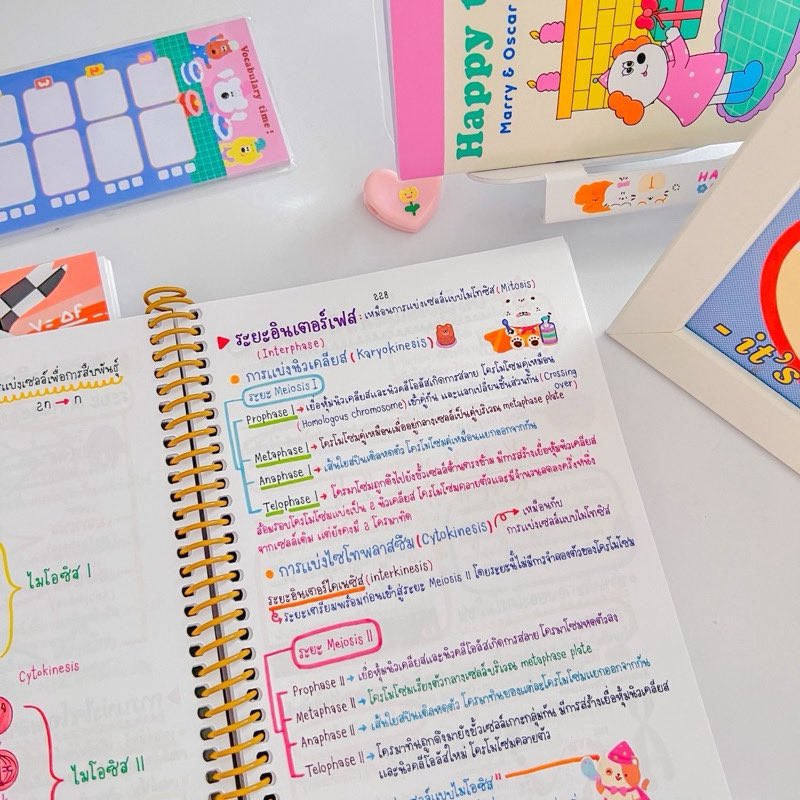 Vocabulary time!
Happy t
Marry & Oscar
HA
- it's
Y= ΔF
แบ่งเซลล์เพื่อการสืบพันธุ์
2n → n
ไมโอซิส I
Cytokinesis
ไมโอซิส II
228
ระยะอินเตอร์เฟส : เหมือนการแบ่งเซลล์แบบไมโทซิส (Mitosis)
(Interphase)
การแบ่งนิวเคลียส (Karyokinesis)
ระยะ Meiosis I
Prophase I → เยื่อหุ้มนิวเคลียสและนิวคลีโอลัสเกิดการสลาย โครโมโซมคู่เหมือน
(Homologous chromosome) เข้าคู่กัน และแลกเปลี่ยนชิ้นส่วนกัน (Crossing over)
Metaphase I → โครโมโซมคู่เหมือนเมื่ออยู่กลางเซลล์เป็นคู่บริเวณ metaphase plate
Anaphase I → เส้นใยสปินเดิลหดตัว โครโมโซมคู่เหมือนแยกออกจากกัน
Telophase I → โครมาโซมถูกดึงไปยังขั้วเซลล์ด้านตรงข้าม มีการสร้างเยื่อหุ้มนิวเคลียส
ล้อมรอบโครโมโซมแบ่งเป็น 2 นิวเคลียส โครโมโซมคลายตัวและมีจำนวนลดลงครึ่งหนึ่ง
จากเซลล์เดิม แต่ยังคงมี 2 โครมาทิด
การแบ่งไซโทพลาสซึม (Cytokinesis) → เหมือนกับ
การแบ่งเซลล์แบบไมโทซิส
ระยะอินเตอร์ไคเนซิส (interkinesis)
ระยะเตรียมพร้อมก่อนเข้าสู่ระยะ Meiosis II โดยระยะนี้ไม่มีการจำลองตัวของโครโมโซม
ระยะ Meiosis II
Prophase II → เยื่อหุ้มนิวเคลียสและนิวคลีโอลัสเกิดการสลาย โครมาโซมหดตัวลง
Metaphase II → โครโมโซมเรียงตัวกลางเซลล์บริเวณ metaphase plate
Anaphase II → เส้นใยสปินเดิลหดตัว โครมาทินของแต่ละโครโมโซมแยกออกจากกัน
Telophase II → โครมาทินถูกดึงมายังขั้วเซลล์เกาะกลุ่มกัน มีการสร้างเยื่อหุ้มนิวเคลียส
และนิวคลีโอลัสใหม่ โครโมโซมคลายตัว
เซลล์แบบไมโอซิส"